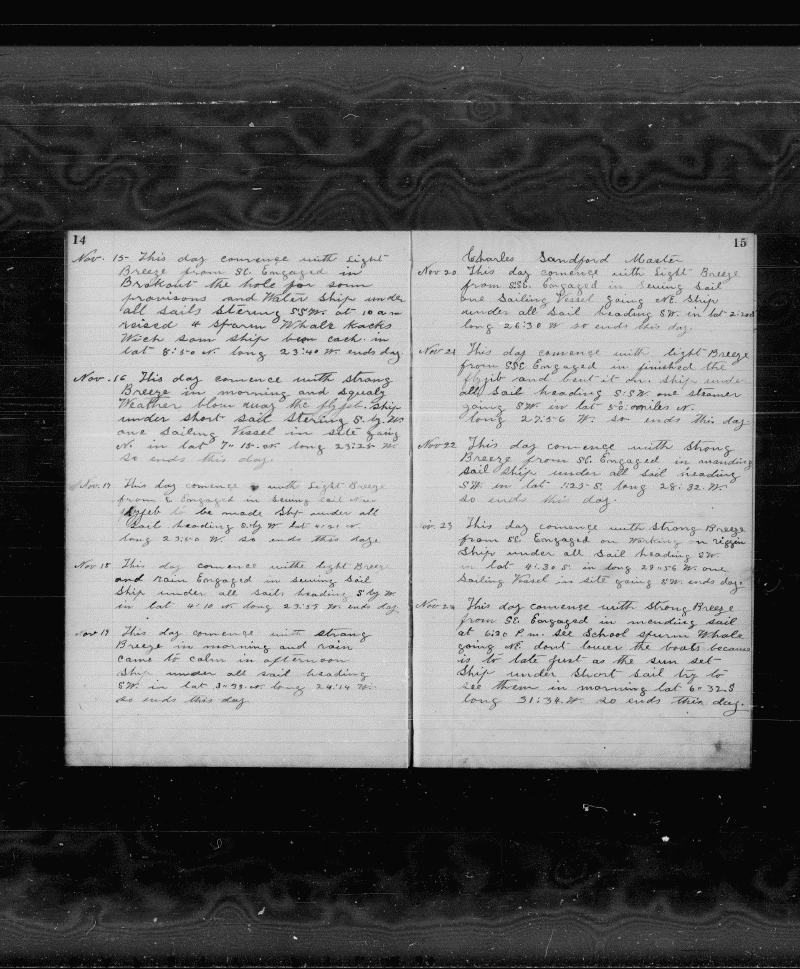 14
Nov. 15 This day comence with Light
Breeze from SE. Engaged in
Brokout the hole for som
provisons and Water Ship under
all sails Stering SSW. at 10 am
reised 4 Sparm Whale
Wich som ship cach in
lat 8:50 N. long 23:40 W. ends day
Nov. 16 This day comence with Strong
Breeze in morning and squaly
Weather blow away the flyjib. Ship
under short sail Stering S. by W.
one Sailing Vessel in site going
N. in lat 7"15. N. long 23:25 W.
so ends this day.
Nov. 17 This day comence with Light Breeze
from E Engaged in Sewing sail New
flyjeb to be made Ship under all
Sail heading S by W lat N.
long 23:00 W. so ends this daye
Nov 18 This day comence withe light Breeze
and rain Engaged in sewing Sail
Ship under all sails heading S by W.
in lat 4:10 N. long 23:55 W. ends day
Nov 19 This day comence with Strong
Breeze in morning and rain
came to calm in afternoon
Ship under all sail heading
SW. in lat 3"39. N. long 24:14 W.
so ends this day
15
Charles Sandford Master
Nov 20 This day comence with Light Breeze
from SSE. Engaged in Sewing Sail
one Sailing Vessel going NE. Ship
under all Sail heading SW. in lat
long 26:30 W so ends this day.
Nov 21 This day comence with light Breeze
from SSE Engaged in finished the
flyjib and bent it on. Ship under
all Sail heading S:SW. one steamer
going SW. in lat miles N.
long 27:56 W. so ends this day
Nov 22 This day comence with Strong
Breeze from SE. Engaged in manding
sail Ship under all sail heading
SW. in lat S. long 28:32. W.
so ends this day.
Nov. 23 This day comence with Strong Breeze
from SE. Engaged on Working on riggin
Ship under all Sail heading SW.
in lat 4:30 S. in long 29:56 W. one
Sailing Vessel in site going SW. ends day.
Nov 24 This day comence with Strong Breeze
from SE. Engaged in mending sail
at 6:20 P.m. See School spurm Whale
going NE. dont lower the boats because
is to late just as the sun set
Ship under Short Sail try to
see them in morning lat 6"32 S
long 31:34. W. so ends this day.